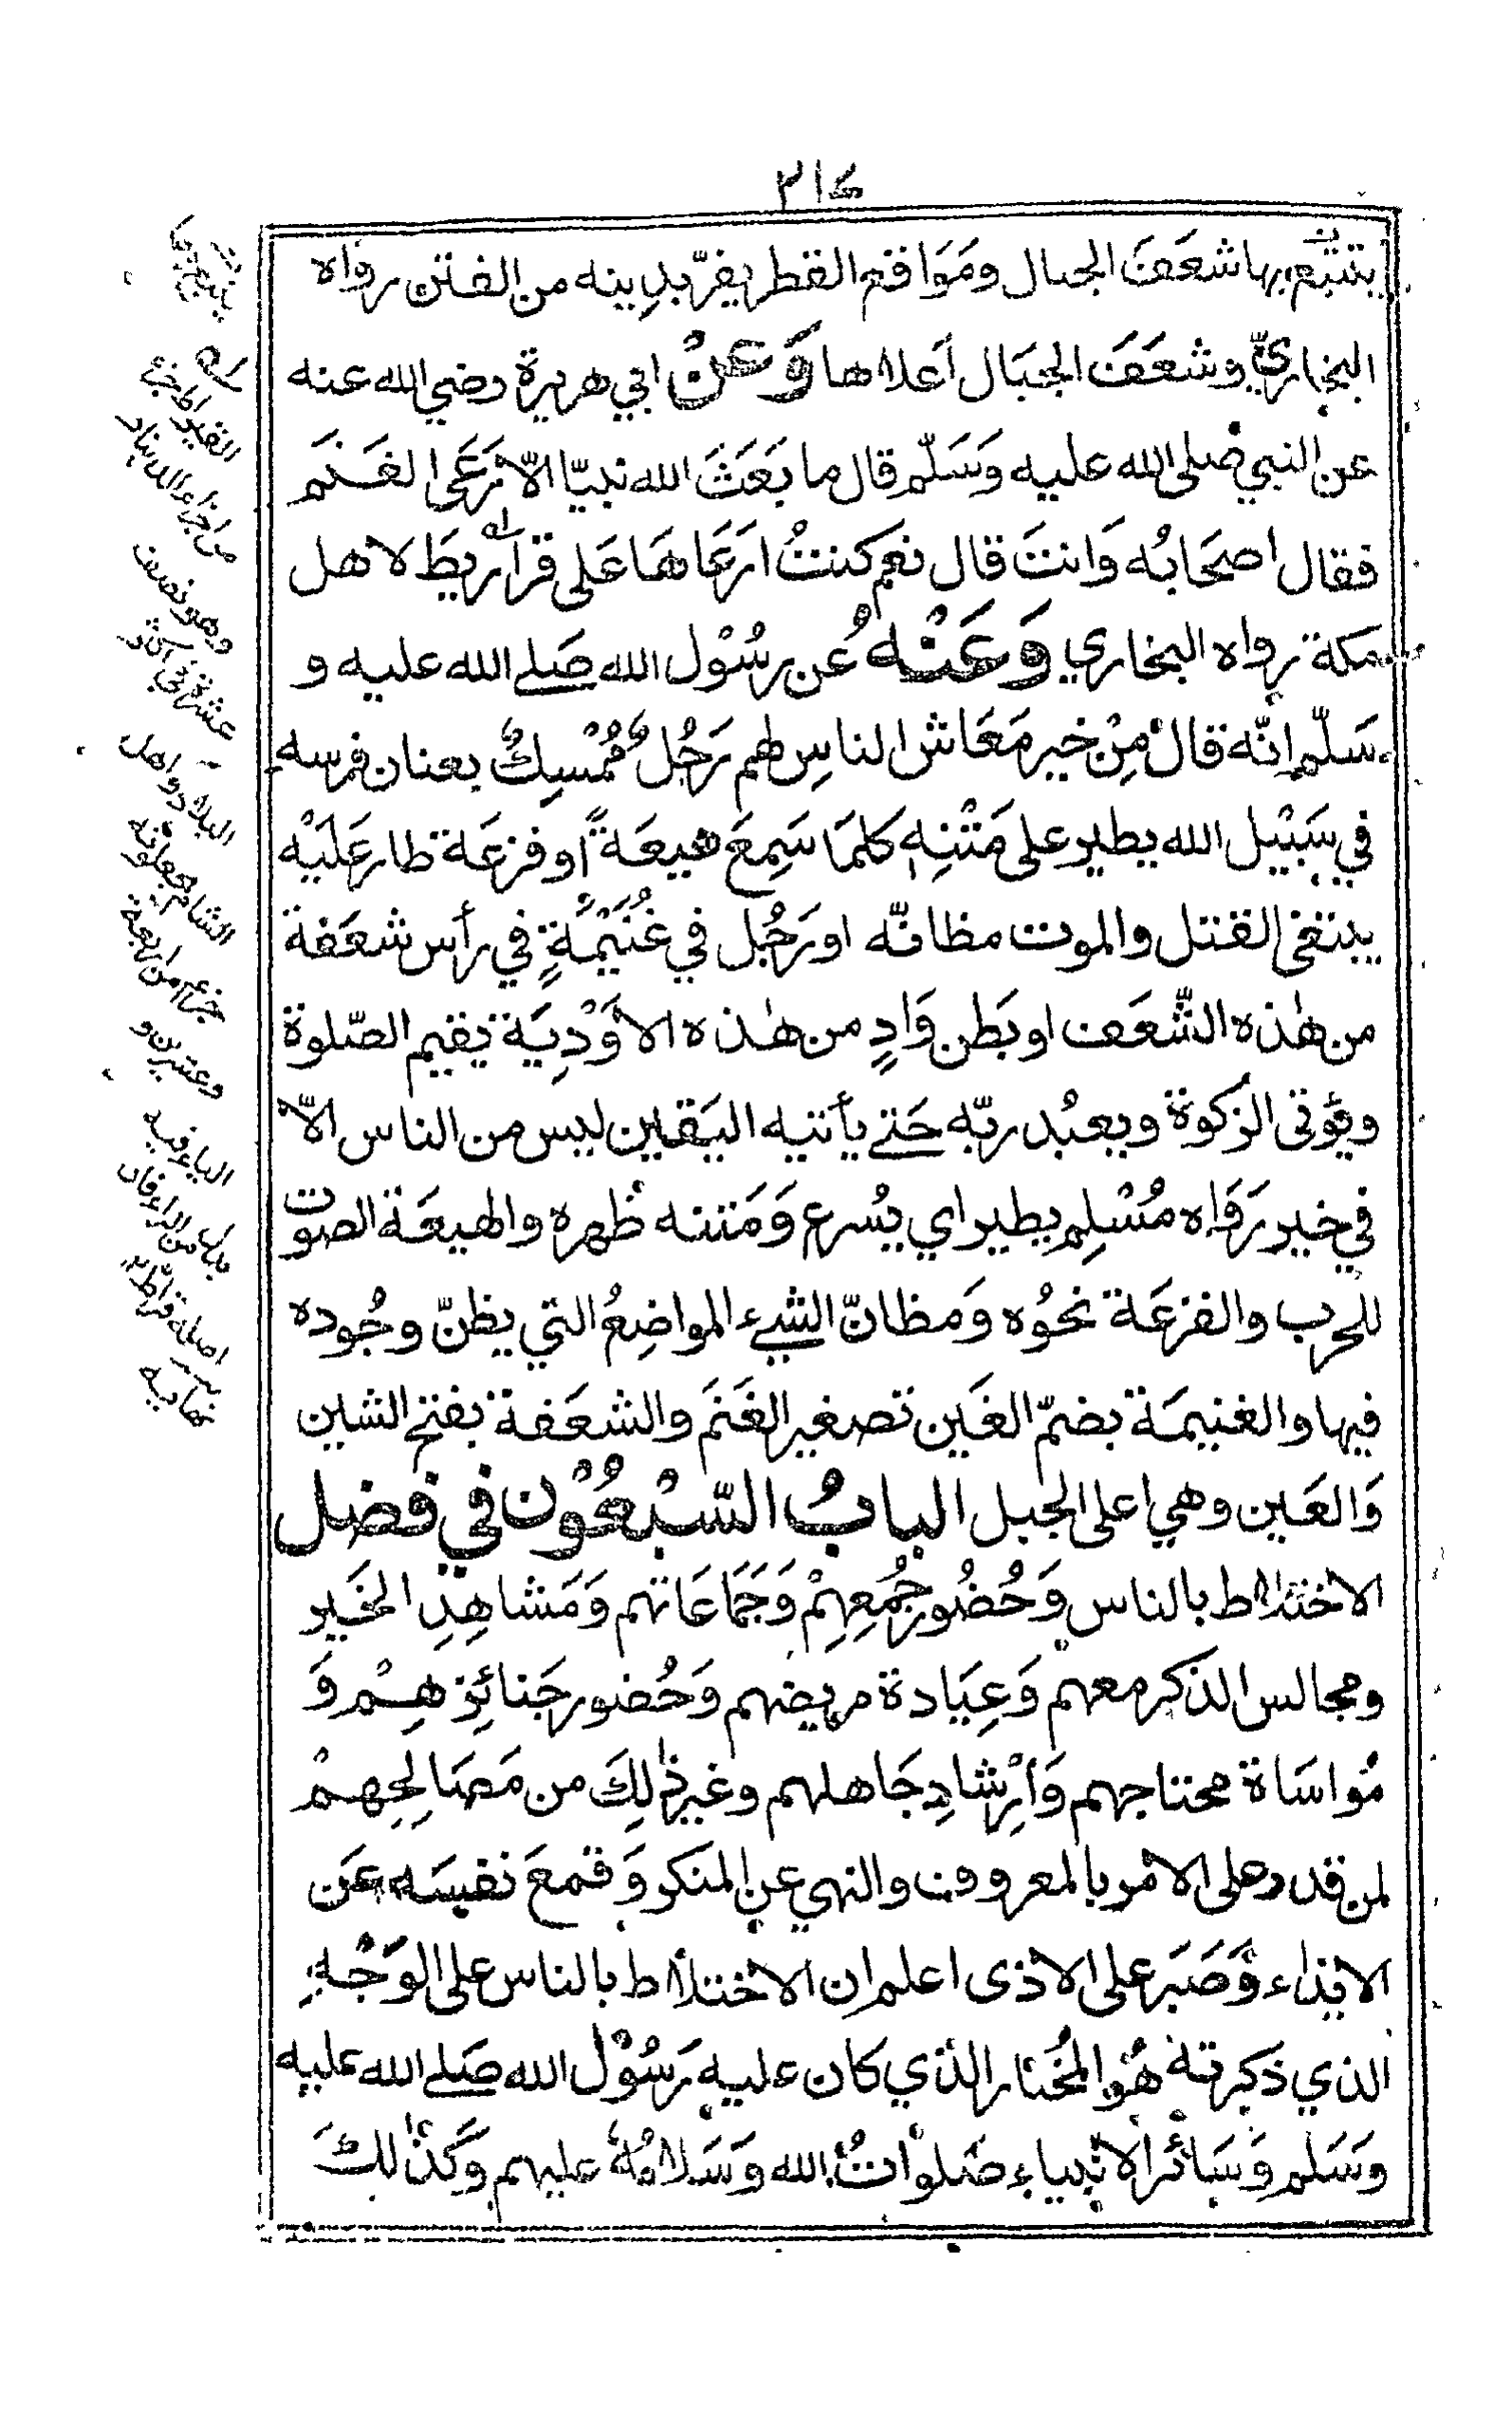 ٣١٤
يتتبع بها شعَفَ الجبال ومَوَاقع القطر يفرّ بدِينه من الفتن رواه
البخاريّ وشعَفَ الجبَال اَعلاها وَعَنْ ابي هريرة رضي الله عنه
عن النبي صلى الله عليه وَسَلّم قال ما بَعَثَ الله نبيّا الاّ رَعَى الغَنَم
فقال اصحَابُه وَانتَ قال نعم كنتُ ارعَاهَا عَلى قراريطَ لاهل
مكة رواه البخاري وَعَنْه عُن رسُوْل الله صَلے الله عليه و
سَلّم انّه قالْ مِنْ خير مَعَاش الناسِ لهم رَجُلٌ مُمْسِكٌ بعنان فرسه
في سَبيْل الله يطير على مَتْنِه كلمَا سَمِعَ هيعَةً او فزعَة طار عَلَيْه
يبتغى القتل والموت مظانّه او رَجُل في غُنَيْمَةٍ في رأس شعَفة
من هٰذه الشّعَف او بَطن وَادٍ من هٰذه الاوْدِيَة يقيم الصّلوة
ويؤتى الزكوة ويعبُد ربّه حَتے يأتيه اليَقين ليس من الناس الاّ
في خير رَوَاه مُسْلِم يطير اي يُسرع وَمَتنه ظهره والهيعَة الصوت
للحرب والفزعَة نحوُه وَمظانّ الشيء المواضِعُ التي يظنّ وجُوده
فيها والغنيمَة بضمّ الغَين تصغير الغَنَم والشعَفة بفتح الشين
وَالعَين وهي اعلى الجبل البابُ السّبْعُوْن في فضل
الاختلاط بالناس وَحُضُور جُمعِهِمْ وَجَمَاعَاتهم وَمَشاهِدِ الخَير
ومجالس الذكر معهم وَعِيَادة مريضهم وَحُضور جَنائِزهِمْ وَ
مُواسَاة محتاجهم وَاِرْشادِ جَاهلهم وغير ذٰلِكَ من مَصَالِحِهمْ
لمن قدر على الامر بالمعروف والنهي عن المنكر وَقمعَ نفسَه عَن
الايذاء وَصَبَر على الاذى اعلم ان الاختلاط بالناس على الوَجْه
الذي ذكرته هُو المُختار الذي كان عليه رَسُوْل الله صَلے الله عليه
وَسَلم وَسَائر الانبياء صَلواتُ الله وَسَلامُهُ عليهم وَكَذٰلكَ
القيراط جزء
من اجزاء الدينار
وهو نصف
عشرة في اكثر
البلاد واهل
الشام يجعلونه
جزءا من اربعة
وعشرين و
الياء فيه
بدل من الراء فان
اصله قراط
نهايه